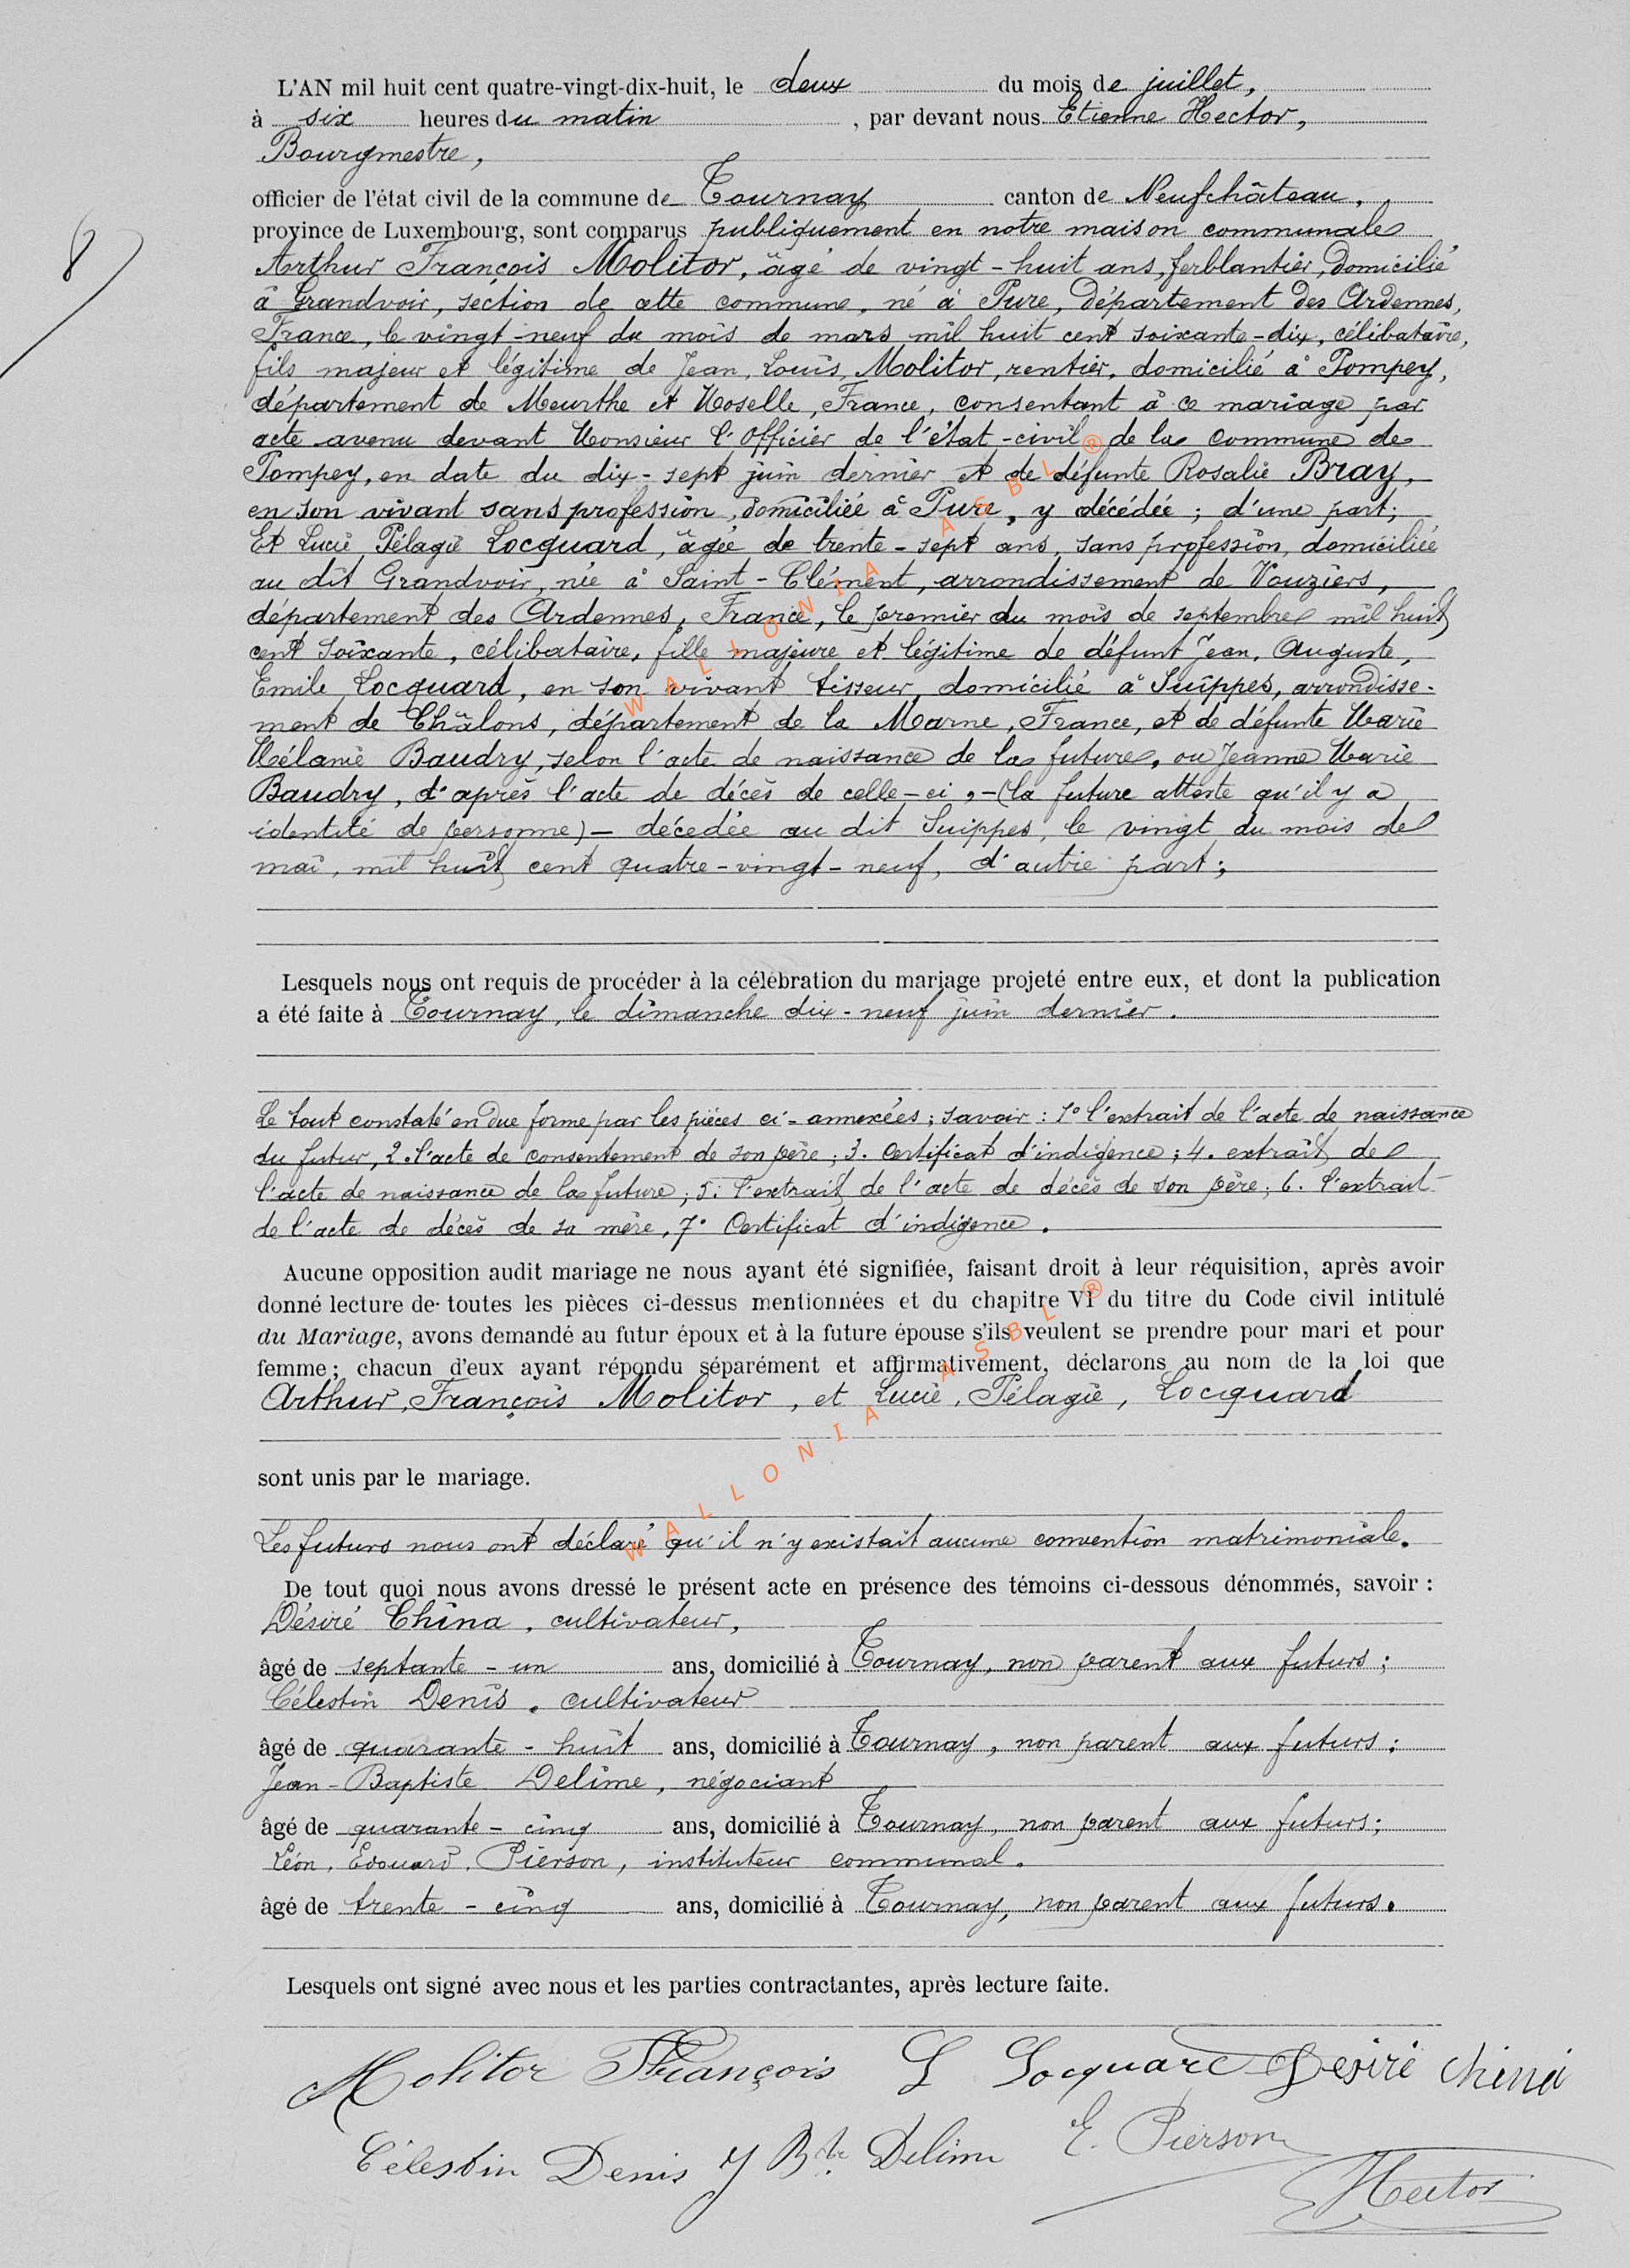 L'AN mil huit cent quatre-vingt-dix-huit, le deux du mois de juillet,
à six heures du matin, par devant nous Etienne Hector,
Bourgmestre,
officier de l'état civil de la commune de Tournay canton de Neufchâteau,
province de Luxembourg, sont comparus publiquement en notre maison communale
8
Arthur François Molitor, âgé de vingt-huit ans, ferblantier, domicilié
à Grandvoir, section de cette commune, né à Pure, département des Ardennes,
France, le vingt-neuf du mois de mars mil huit cent soixante-dix, célibataire,
fils majeur et légitime de Jean, Louis, Molitor, rentier, domicilié à Pompey,
département de Meurthe et Moselle, France, consentant à ce mariage par
acte avenu devant Monsieur l'officier de l'état-civil de la commune de
Pompey, en date du dix-sept juin dernier et de défunte Rosalie Bray,
en son vivant sans profession, domiciliée à Pure, y décédée ; d'une part ;
Et Lucie, Pélagie Locquard, âgée de trente-sept ans, sans profession, domiciliée
au dit Grandvoir, née à Saint-Clément, arrondissement de Vouziers,
département des Ardennes, France, le premier du mois de septembre mil huit
cent soixante, célibataire, fille majeure et légitime de défunt Jean, Auguste,
Emile, Locquard, en son vivant tisseur, domicilié à Suippes, arrondisse-
ment de Châlons, département de la Marne, France, et de défunte Marie
Mélanie Baudry, selon l'acte de naissance de la future, ou Jeanne Marie
Baudry, d'après l'acte de décès de celle-ci, - (la future atteste qu'il y a
identité de personne) - décedée au dit Suippes, le vingt du mois de
mai, mil huit cent quatre-vingt-neuf, d'autre part ;
WALLONIA ASBL ®
Lesquels nous ont requis de procéder à la célébration du mariage projeté entre eux, et dont la publication
a été faite à Tournay, le dimanche dix-neuf juin dernier.
Le tout constaté en due forme par les pièces ci-annexées ; savoir : 1° l'extrait de l'acte de naissance
du futur, 2. l'acte de consentement de son père ; 3. Certificat d'indigence ; 4. extrait de
l'acte de naissance de la future ; 5. l'extrait de l'acte de décès de son père ; 6. l'extrait
de l'acte de décès de sa mère, 7° Certificat d'indigence.
Aucune opposition audit mariage ne nous ayant été signifiée, faisant droit à leur réquisition, après avoir
donné lecture de toutes les pièces ci-dessus mentionnées et du chapitre VI du titre du Code civil intitulé
du Mariage, avons demandé au futur époux et à la future épouse s'ils veulent se prendre pour mari et pour
femme ; chacun d'eux ayant répondu séparément et affirmativement, déclarons au nom de la loi que
Arthur, François Molitor, et Lucie, Pélagie, Locquard
sont unis par le mariage.
WALLONIA ASBL ®
Les futurs nous ont déclaré qu'il n'y existait aucune convention matrimoniale.
De tout quoi nous avons dressé le présent acte en présence des témoins ci-dessous dénommés, savoir :
Désiré China, cultivateur,
âgé de septante-un ans, domicilié à Tournay, non parent aux futurs ;
Célestin Denis, cultivateur
âgé de quarante-huit ans, domicilié à Tournay, non parent aux futurs ;
Jean-Baptiste Delime, négociant
âgé de quarante-cinq ans, domicilié à Tournay, non parent aux futurs ;
Léon, Edouard, Pierson, instituteur communal.
âgé de trente-cinq ans, domicilié à Tournay, non parent aux futurs.
Lesquels ont signé avec nous et les parties contractantes, après lecture faite.
Molitor François L Locquard Desiré China
Célestin Denis J Bte Delime E. Pierson
Hector